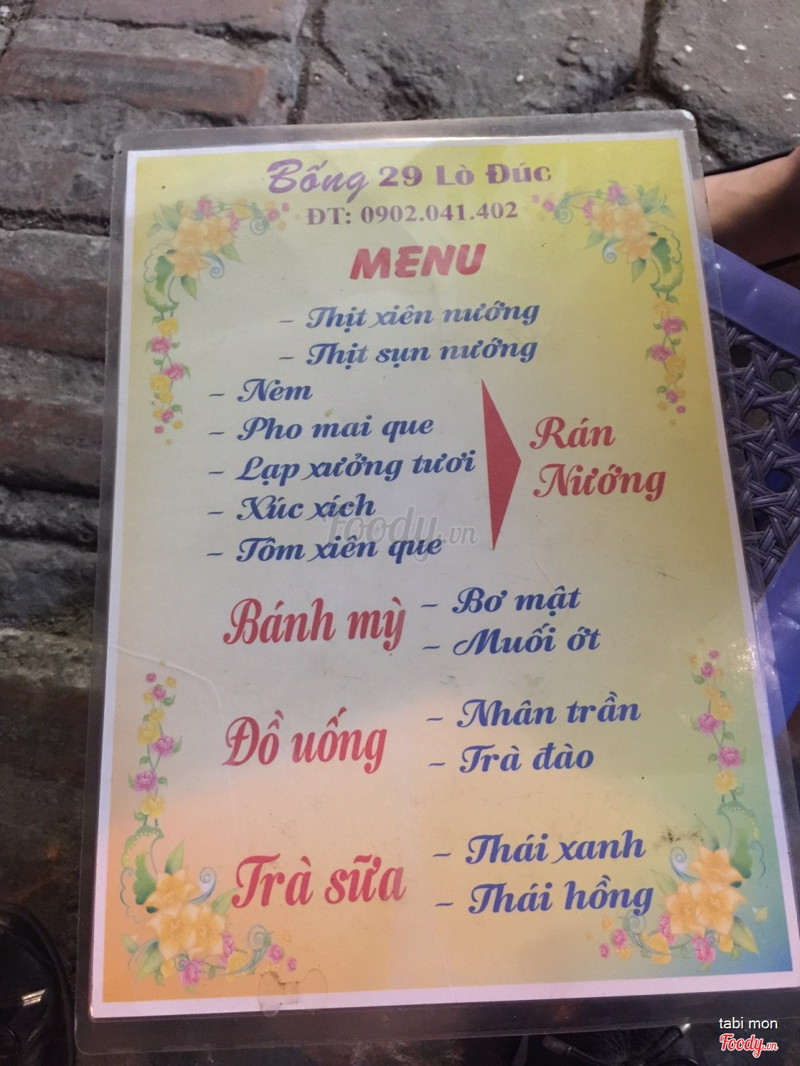 Bống 29 Lò Đúc
ĐT: 0902.041.402
MENU
- Thịt xiên nướng
- Thịt sụn nướng
- Nem
- Pho mai que
- Lạp xưởng tươi
- Xúc xích
- Tôm xiên que
Rán
Nướng
Bánh mỳ
- Bơ mật
- Muối ớt
Đồ uống
- Nhân trần
- Trà đào
Trà sữa
- Thái xanh
- Thái hồng
Foody.vn
tabi mon
Foody.vn